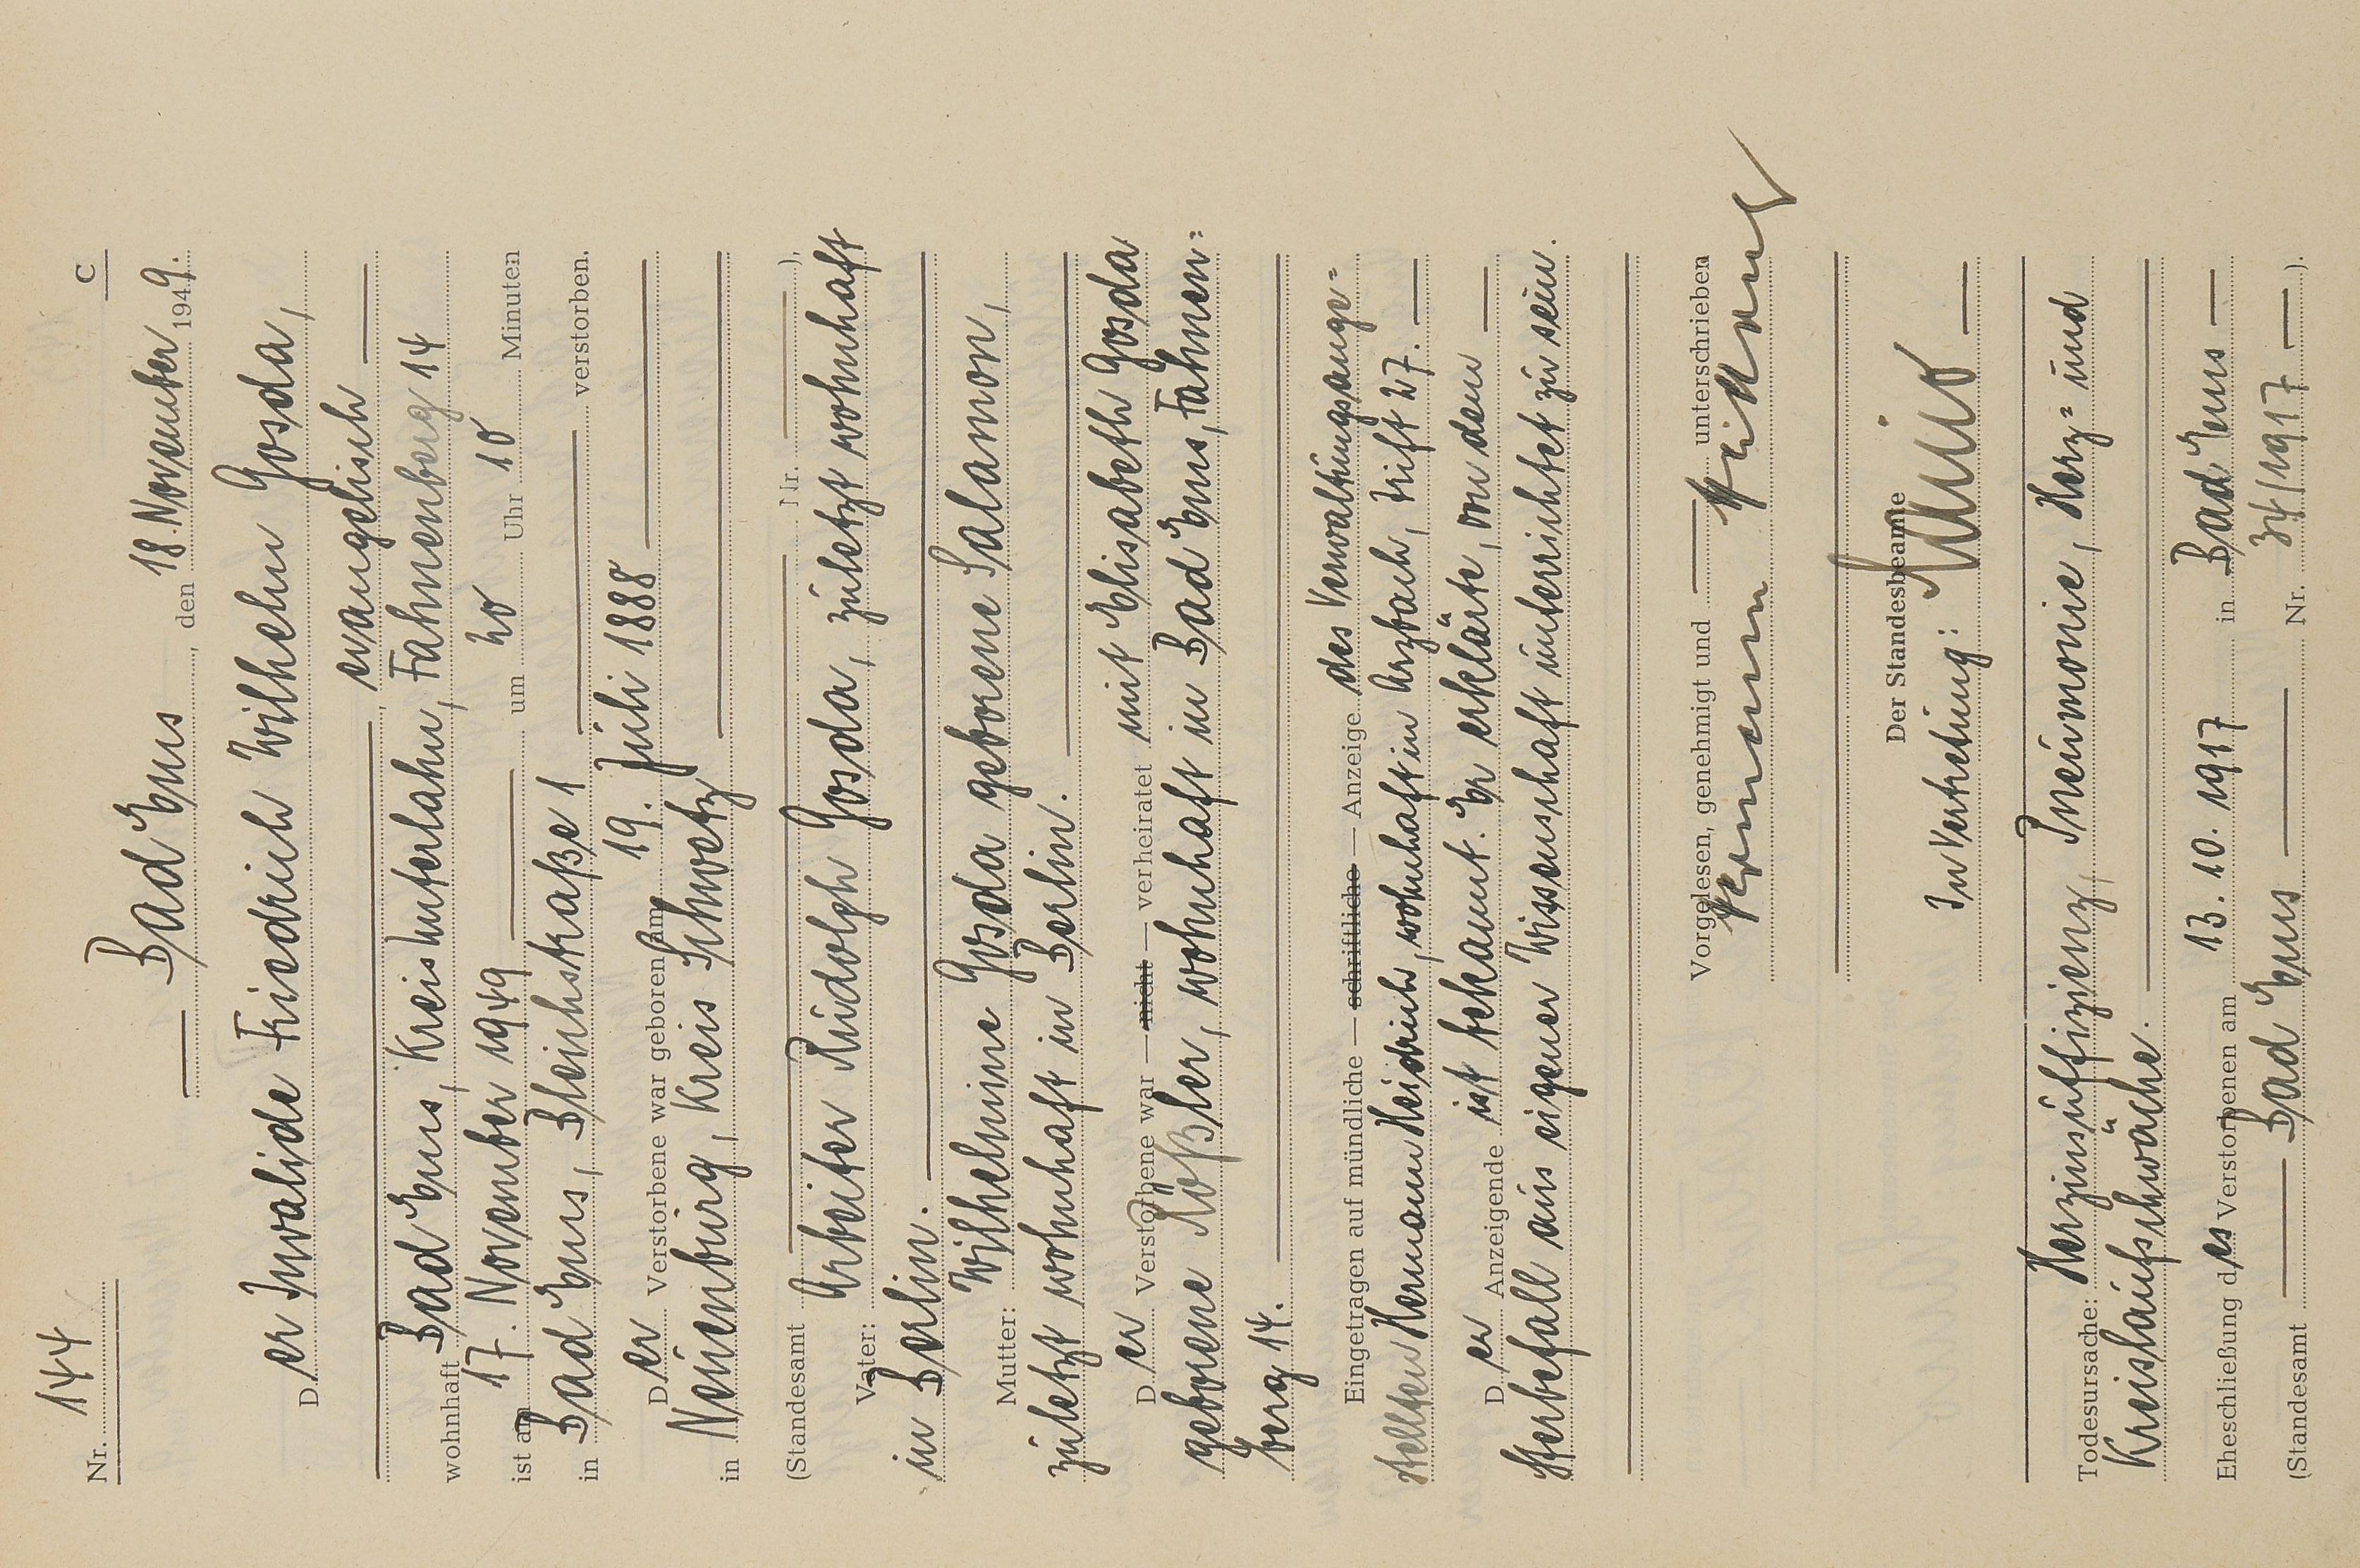 Nr. 144
C
Bad Ems, den 18. November 1949.
Der Invalide Friedrich Wilhelm Gosda,
evangelisch
wohnhaft Bad Ems, Kreis Unterlahn, Fahnenberg 14
ist am 17. November 1949 um 20 Uhr 10 Minuten
in Bad Ems, Bleichstraße 1 verstorben.
Der Verstorbene war geboren am 19. Juli 1888
in Neuenburg, Kreis Schwetz
(Standesamt Nr. ),
Vater: Arbeiter Rudolph Gosda, zuletzt wohnhaft
in Berlin.
Mutter: Wilhelmine Gosda geborene Salamon,
zuletzt wohnhaft in Berlin.
Der Verstorbene war — nicht — verheiratet mit Elisabeth Gosda
geborene Rößler, wohnhaft in Bad Ems, Fahnen=
berg 14.
Eingetragen auf mündliche — schriftliche — Anzeige des Verwaltungsange=
stellten Hermann Heidrich, wohnhaft in Arzbach, Trift 27.
Der Anzeigende ist bekannt. Er erklärte, von dem
Sterbefall aus eigener Wissenschaft unterrichtet zu sein.
Vorgelesen, genehmigt und unterschrieben
Hermann Heidrich
Der Standesbeamte
In Vertretung:
Todesursache: Herzinsuffizienz, Pneumonie, Herz= und
Kreislaufschwäche.
Eheschließung des Verstorbenen am 13. 10. 1917 in Bad Ems
(Standesamt Bad Ems Nr. 34/1917 ).